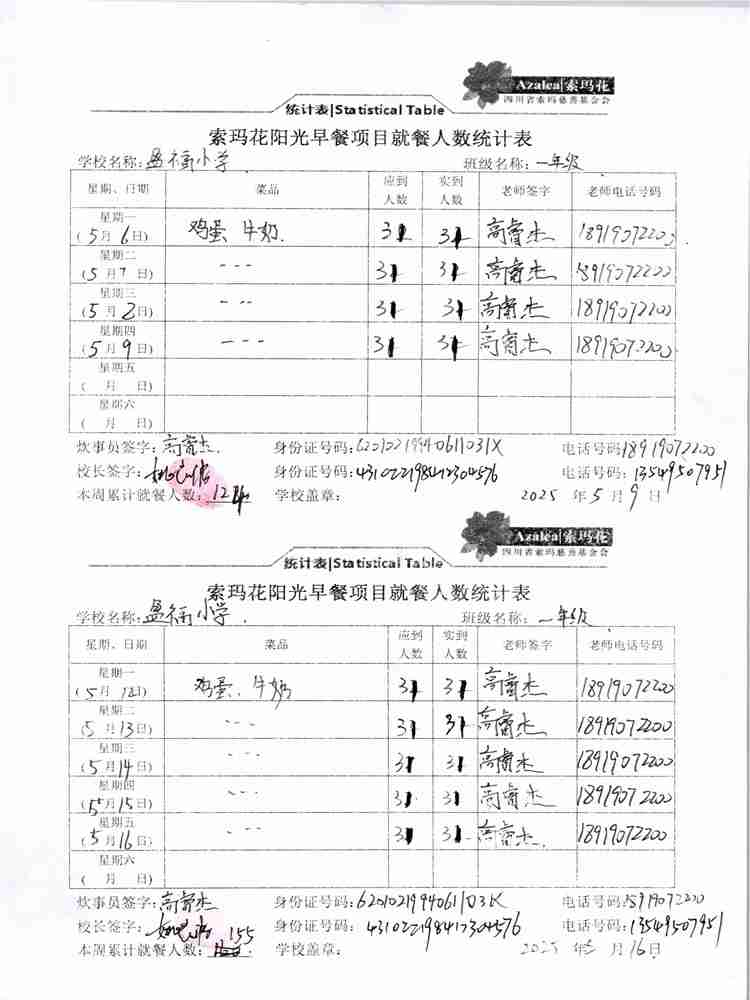 Azalea|索玛花
四川省索玛慈善基金会
统计表|Statistical Table
索玛花阳光早餐项目就餐人数统计表
学校名称:盈福小学 班级名称:一年级
星期、日期 菜品 应到人数 实到人数 老师签字 老师电话号码
星期一 (5月6日) 鸡蛋 牛奶. 31 31 高睿杰 18919072200
星期二 (5月7日) --- 31 31 高睿杰 18919072200
星期三 (5月2日) --- 31 31 高睿杰 18919072200
星期四 (5月9日) --- 31 31 高睿杰 18919072200
星期五 ( 月 日)
星期六 ( 月 日)
炊事员签字:高睿杰. 身份证号码:62010219940611031X 电话号码:18919072200
校长签字: 身份证号码:431022198412304576 电话号码:13549507951
本周累计就餐人数:124 学校盖章: 2025年5月9日
Azalea|索玛花
四川省索玛慈善基金会
统计表|Statistical Table
索玛花阳光早餐项目就餐人数统计表
学校名称:盈福小学. 班级名称:一年级
星期、日期 菜品 应到人数 实到人数 老师签字 老师电话号码
星期一 (5月12日) 鸡蛋、牛奶 31 31 高睿杰 18919072200
星期二 (5月13日) --- 31 31 高睿杰 18919072200
星期三 (5月14日) --- 31 31 高睿杰 18919072200
星期四 (5月15日) --- 31 31 高睿杰 18919072200
星期五 (5月16日) --- 31 31 高睿杰. 18919072200
星期六 ( 月 日)
炊事员签字:高睿杰 身份证号码:62010219940611031X 电话号码:18919072200
校长签字: 身份证号码:431022198412304576 电话号码:13549507951
本周累计就餐人数:155 学校盖章: 2025年5月16日